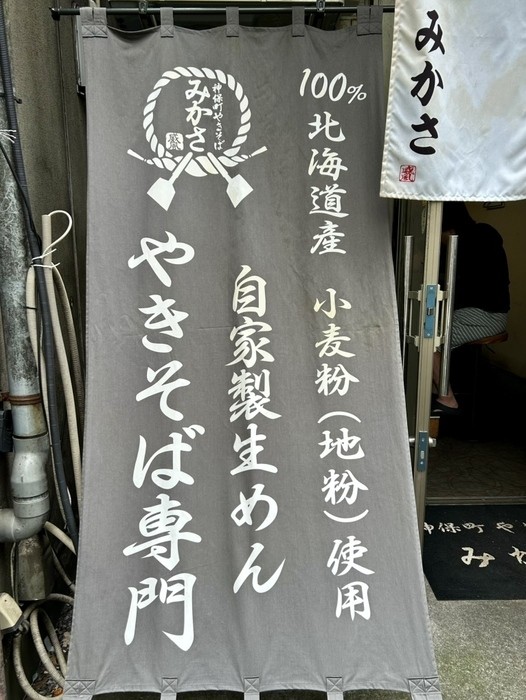 みかさ
100%北海道産 小麦粉(地粉)使用
自家製生めん
神保町やきそば
みかさ
やきそば専門
神保町や
みか